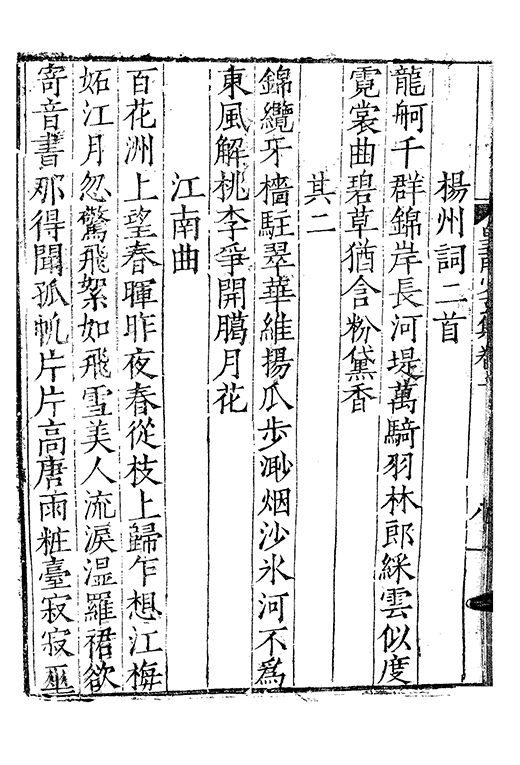 楊州詞二首
龍舸千群錦岸長河堤萬騎羽林郎綵雲似度
霓裳曲碧草猶含粉黛香
其二
錦纜牙檣駐翠華維揚瓜步渺烟沙氷河不爲
東風解桃李爭開臈月花
江南曲
百花洲上望春暉昨夜春從枝上歸乍想江梅
妬江月忽驚飛絮如飛雪美人流淚濕羅裙欲
寄音書那得聞孤帆片片高唐雨粧臺寂寂巫